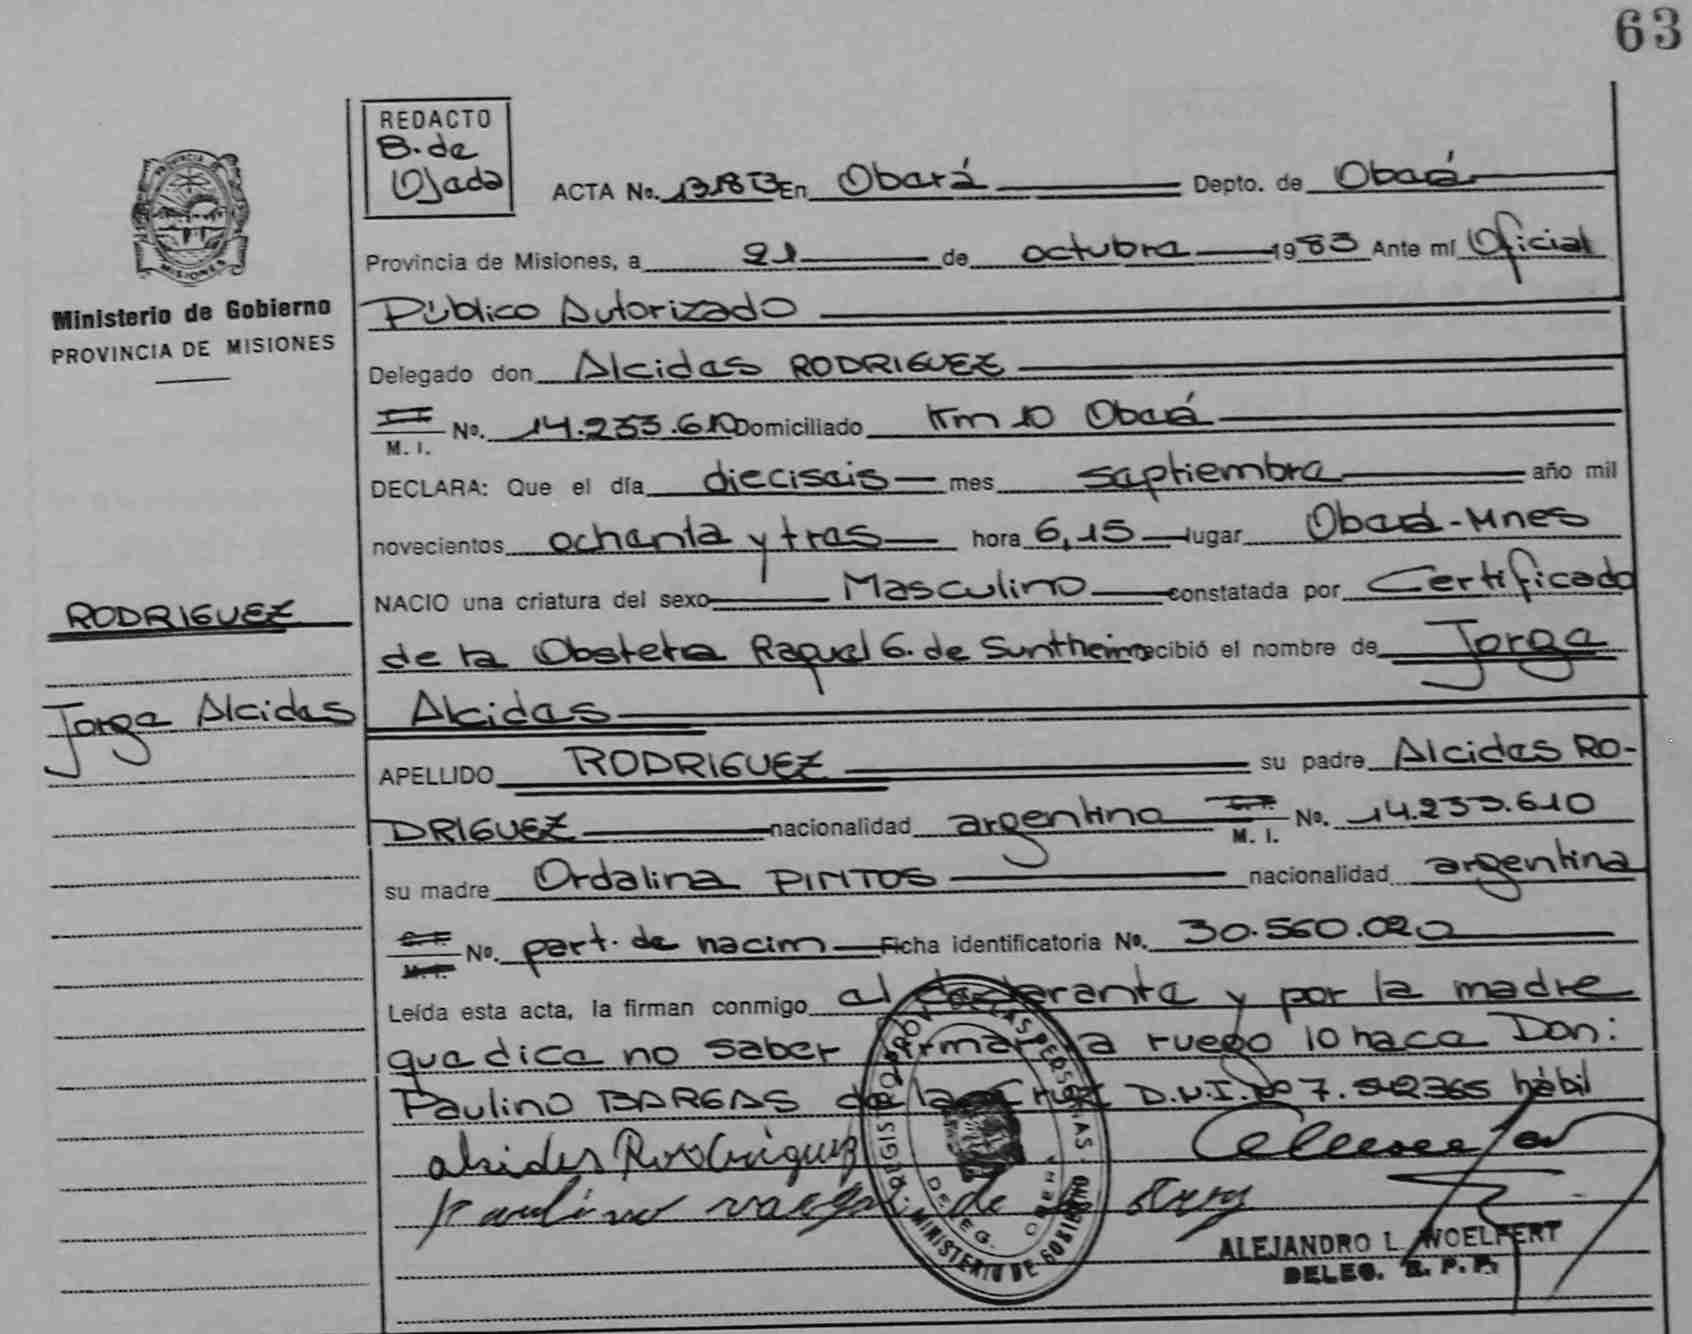 63
REDACTO
B. de
Ojeda
ACTA No. 1318 B En Oberá Depto. de Oberá
Provincia de Misiones, a 21 de octubre 1983 Ante mí Oficial
Ministerio de Gobierno
PROVINCIA DE MISIONES
Público Autorizado
Delegado don Alcides RODRIGUEZ
M. I. No. 14.233.610 Domiciliado Km 10 Oberá
DECLARA: Que el día dieciseis mes septiembre año mil
novecientos ochenta y tres hora 6,15 lugar Oberá-Mnes
NACIO una criatura del sexo Masculino constatada por Certificado
RODRIGUEZ
de la Obstetra Raquel G. de Suntheim recibió el nombre de Jorge
Jorge Alcides
Alcides
APELLIDO RODRIGUEZ su padre Alcides RO-
DRIGUEZ nacionalidad argentino C.I. M. I. No. 14.233.610
su madre Ordalina PINTOS nacionalidad argentina
C.I. M.I. No. part. de nacim Ficha identificatoria No. 30.560.020
Leída esta acta, la firman conmigo el declarante y por la madre
que dice no saber firmar a ruego lo hace Don:
Paulino BARGAS de la Cruz D.N.I. No 7.542365 hábil
alsides Rodriguez
Paulino vargas de la Cruz
REGISTRO PROV. DE LAS PERSONAS
DELEG. OBERA
MINISTERIO DE GOBIERNO
ALEJANDRO L. WOELFERT
DELEG. R. P. P.